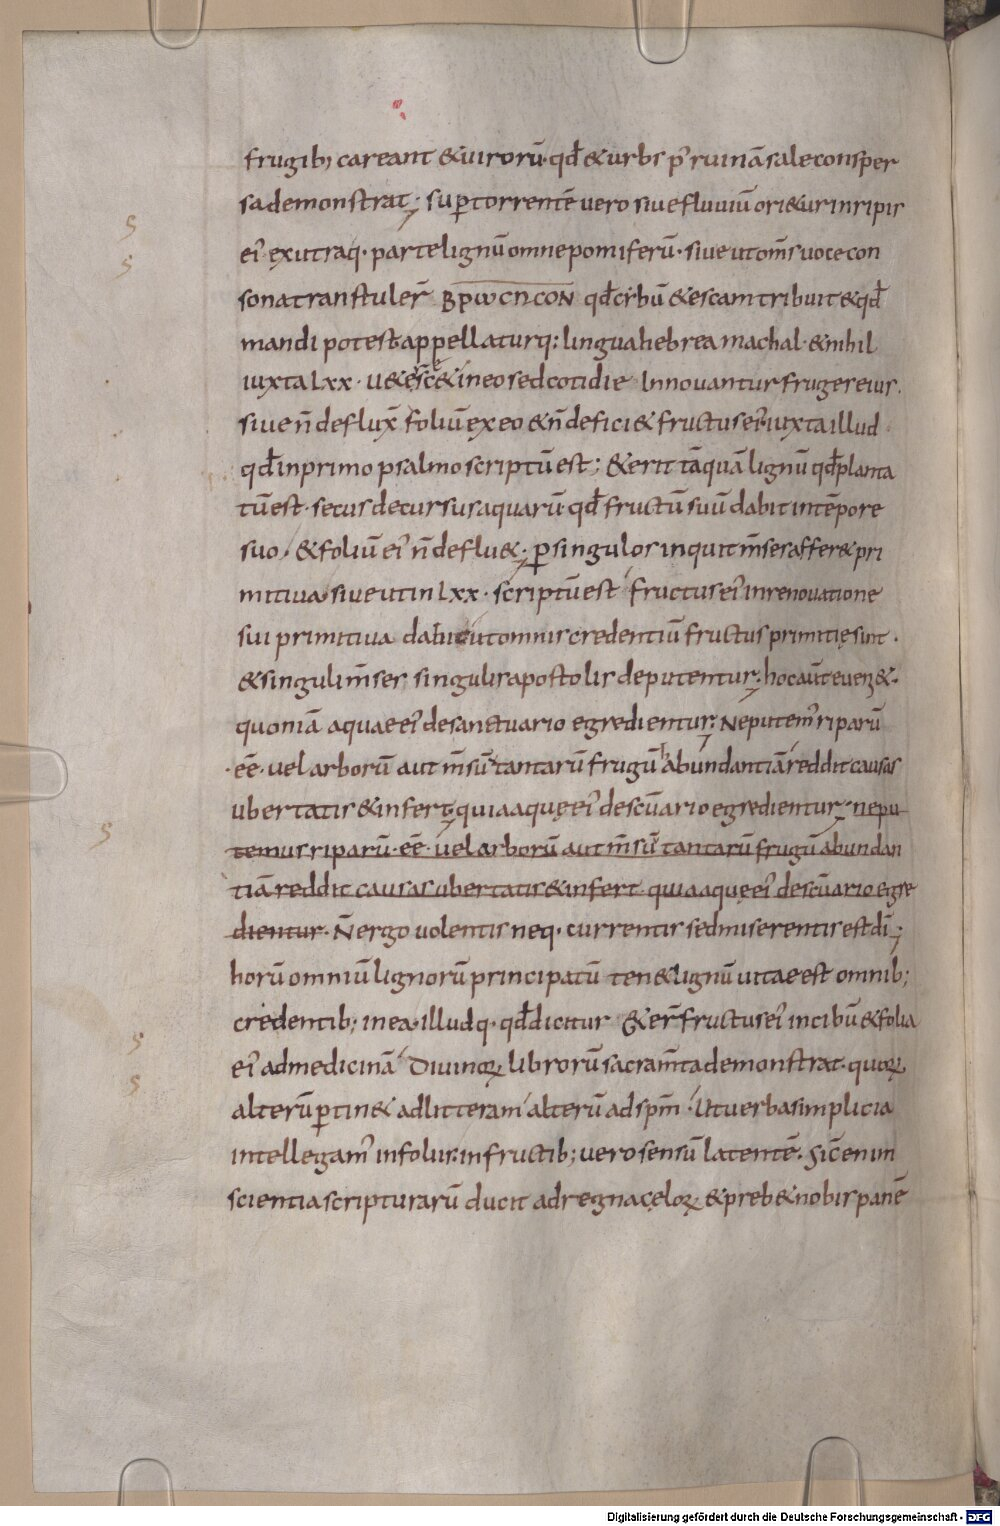 frugib; careant &uirorū· qđ &urbs p̄ ruinā sale consper
sa demonstrat; sup torrentē uero siue fluuiū ori&ur in ripis
ei᾽ ex utraq· parte lignū omne pomiferū· siue ut om̄s uoce con
sona transtuler̄ ΒΡΩCΙΜΟΝ qđ cybū &escam tribuit &qđ
mandi potest appellaturq: lingua hebrea machal· &nihil
iuxta Lxx· u&escet in eo sed cotidie Innouantur fruges eius·
siue n̄ deflux̄ foliū ex eo &n̄ defici& fructus ei᾽ iuxta illud·
qđ in primo psalmo scriptū est; &erit tāquā lignū qđ planta
tū est· secus decursus aquarū· qđ fructū suū dabit in tēpore
suo· &foliū ei᾽ n̄ deflu&· p singulos inquit m̄ses affer& pri
mitiua siue ut in Lxx· scriptū est fructus ei᾽ in renouatione
sui primitiua dabit ut omnis credentiū fructus primitię sint·
&singuli m̄ses singulis apostolis deputentur· hoc aūt eueni&·
quoniā aquae ei᾽ de sanctuario egredientur; Ne putem᾽ riparū
·ēē· uel arborū aut m̄sū tantarū frugū habundantiā reddit causas
ubertatis &infert· quia aquę ei᾽ de scūario egredientur· ne pu
temus riparū· ēē· uel arborū aut m̄sū tantarū frugū abundan
tiā reddit causas ubertatis &infert· quia aquę ei᾽ de scūario egre
dientur· N̄ ergo uolentis neq· currentis sed miserentis est dī;
horū omniū lignorū principatū ten& lignū uitae est omnib;
credentib; in ea· illudq· qđ dicitur &er̄ fructus ei᾽ in cibū &folia
ei᾽ ad medicinā Diuinoꝝ librorū sacram̄ta demonstrat· quoꝝ
alterū ptin& ad litteram alterū ad sp̄m· Ut uerba simplicia
intellegam᾽ in foliis· in fructib; uero sensū latentē· Sic enim
scientia scripturarū ducit ad regna cęloꝝ &preb& nobis panē
Digitalisierung gefördert durch die Deutsche Forschungsgemeinschaft - DFG